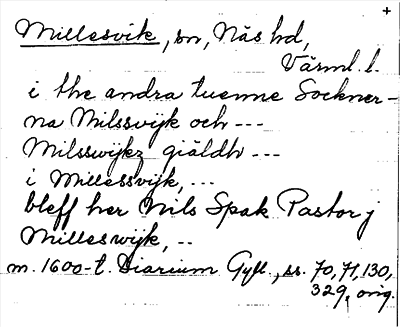 +
Millesvik, sn, Näs hd,
Värml. l.
i the andra tuenne Sockner-
na Milssvijk och ---
Milsswijkz giäldh ---
i Millessvijk, ---
bleff her Nils Spak Pastor j
Milleswijk, --
m. 1600-t. Diarium Gyll., ss. 70, 71, 130,
329, orig.